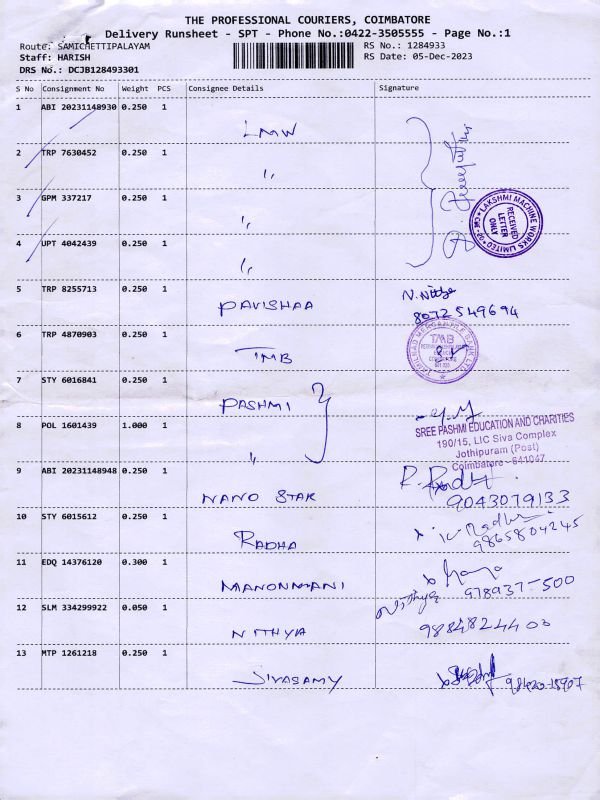 THE PROFESSIONAL COURIERS, COIMBATORE
Delivery Runsheet - SPT - Phone No.:0422-3505555 - Page No.:1
Route: SAMICHETTIPALAYAM RS No.: 1284933
Staff: HARISH RS Date: 05-Dec-2023
DRS No.: DCJB128493301
S No Consignment No Weight PCS Consignee Details Signature
1 ABI 20231148930 0.250 1
LMW
2 TRP 7630452 0.250 1
"
3 GPM 337217 0.250 1
"
LAKSHMI MACHINE WORKS LIMITED
RECEIVED LETTER ONLY
4 UPT 4042439 0.250 1
"
5 TRP 8255713 0.250 1
PAVISHAA
8072549694
6 TRP 4870903 0.250 1
TMB
TAMILNAD MERCANTILE BANK LTD.
TMB
7 STY 6016841 0.250 1
PASHMI
8 POL 1601439 1.000 1
"
SREE PASHMI EDUCATION AND CHARITIES
190/15, LIC Siva Complex
Jothipuram (Post)
Coimbatore - 641047
9 ABI 20231148948 0.250 1
NANO STAR
9043079133
10 STY 6015612 0.250 1
RADHA
9865804245
11 EDQ 14376120 0.300 1
MANONMANI
978937-500
12 SLM 334299922 0.050 1
Nithya
NITHYA
9884824400
13 MTP 1261218 0.250 1
SIVASAMY